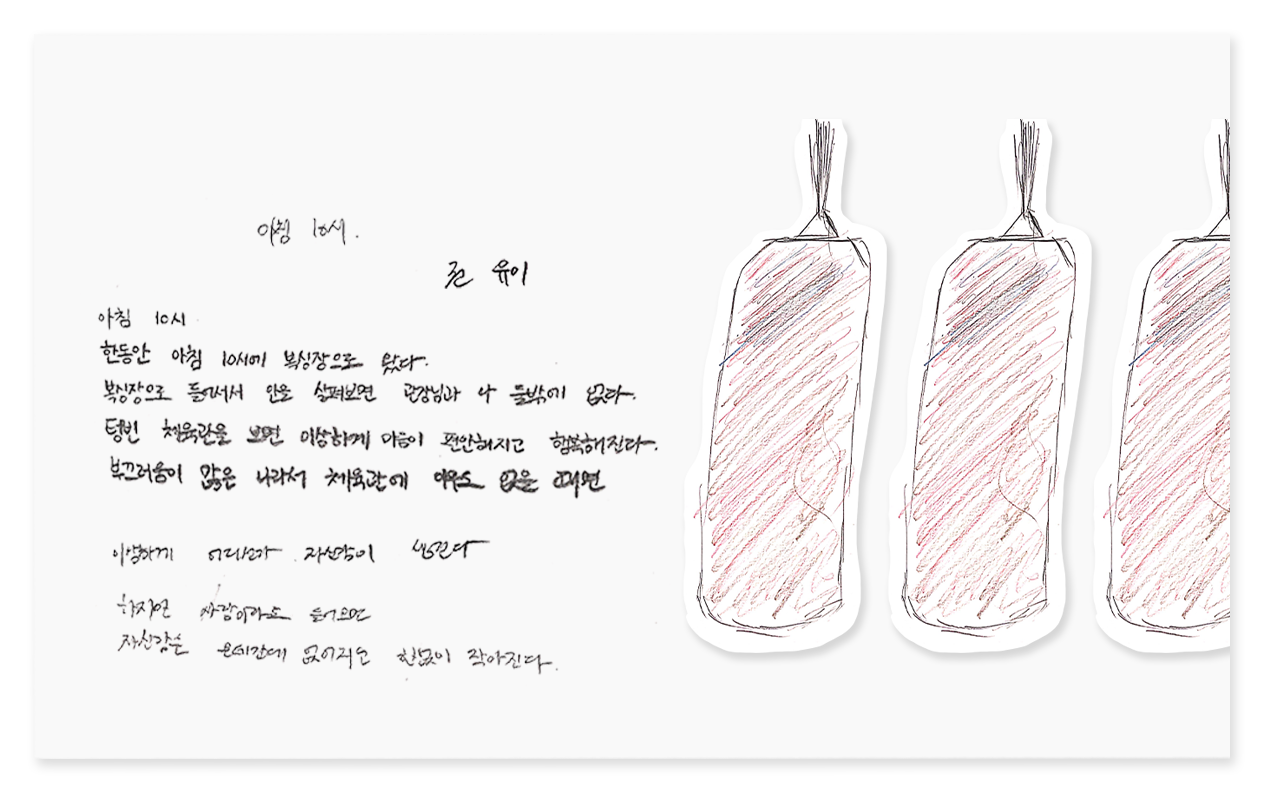 아침 10시.
유이
아침 10시
한동안 아침 10시에 복싱장으로 왔다.
복싱장으로 들어서서 안을 살펴보면 관장님과 나 둘밖에 없다.
텅빈 체육관을 보면 이상하게 마음이 편안해지고 행복해진다.
부끄러움이 많은 나라서 체육관에 아무도 없을 때면
이상하게 어디선가 자신감이 생긴다
하지만 사람이라도 들어오면
자신감은 온데간데 없어지고 한없이 작아진다.